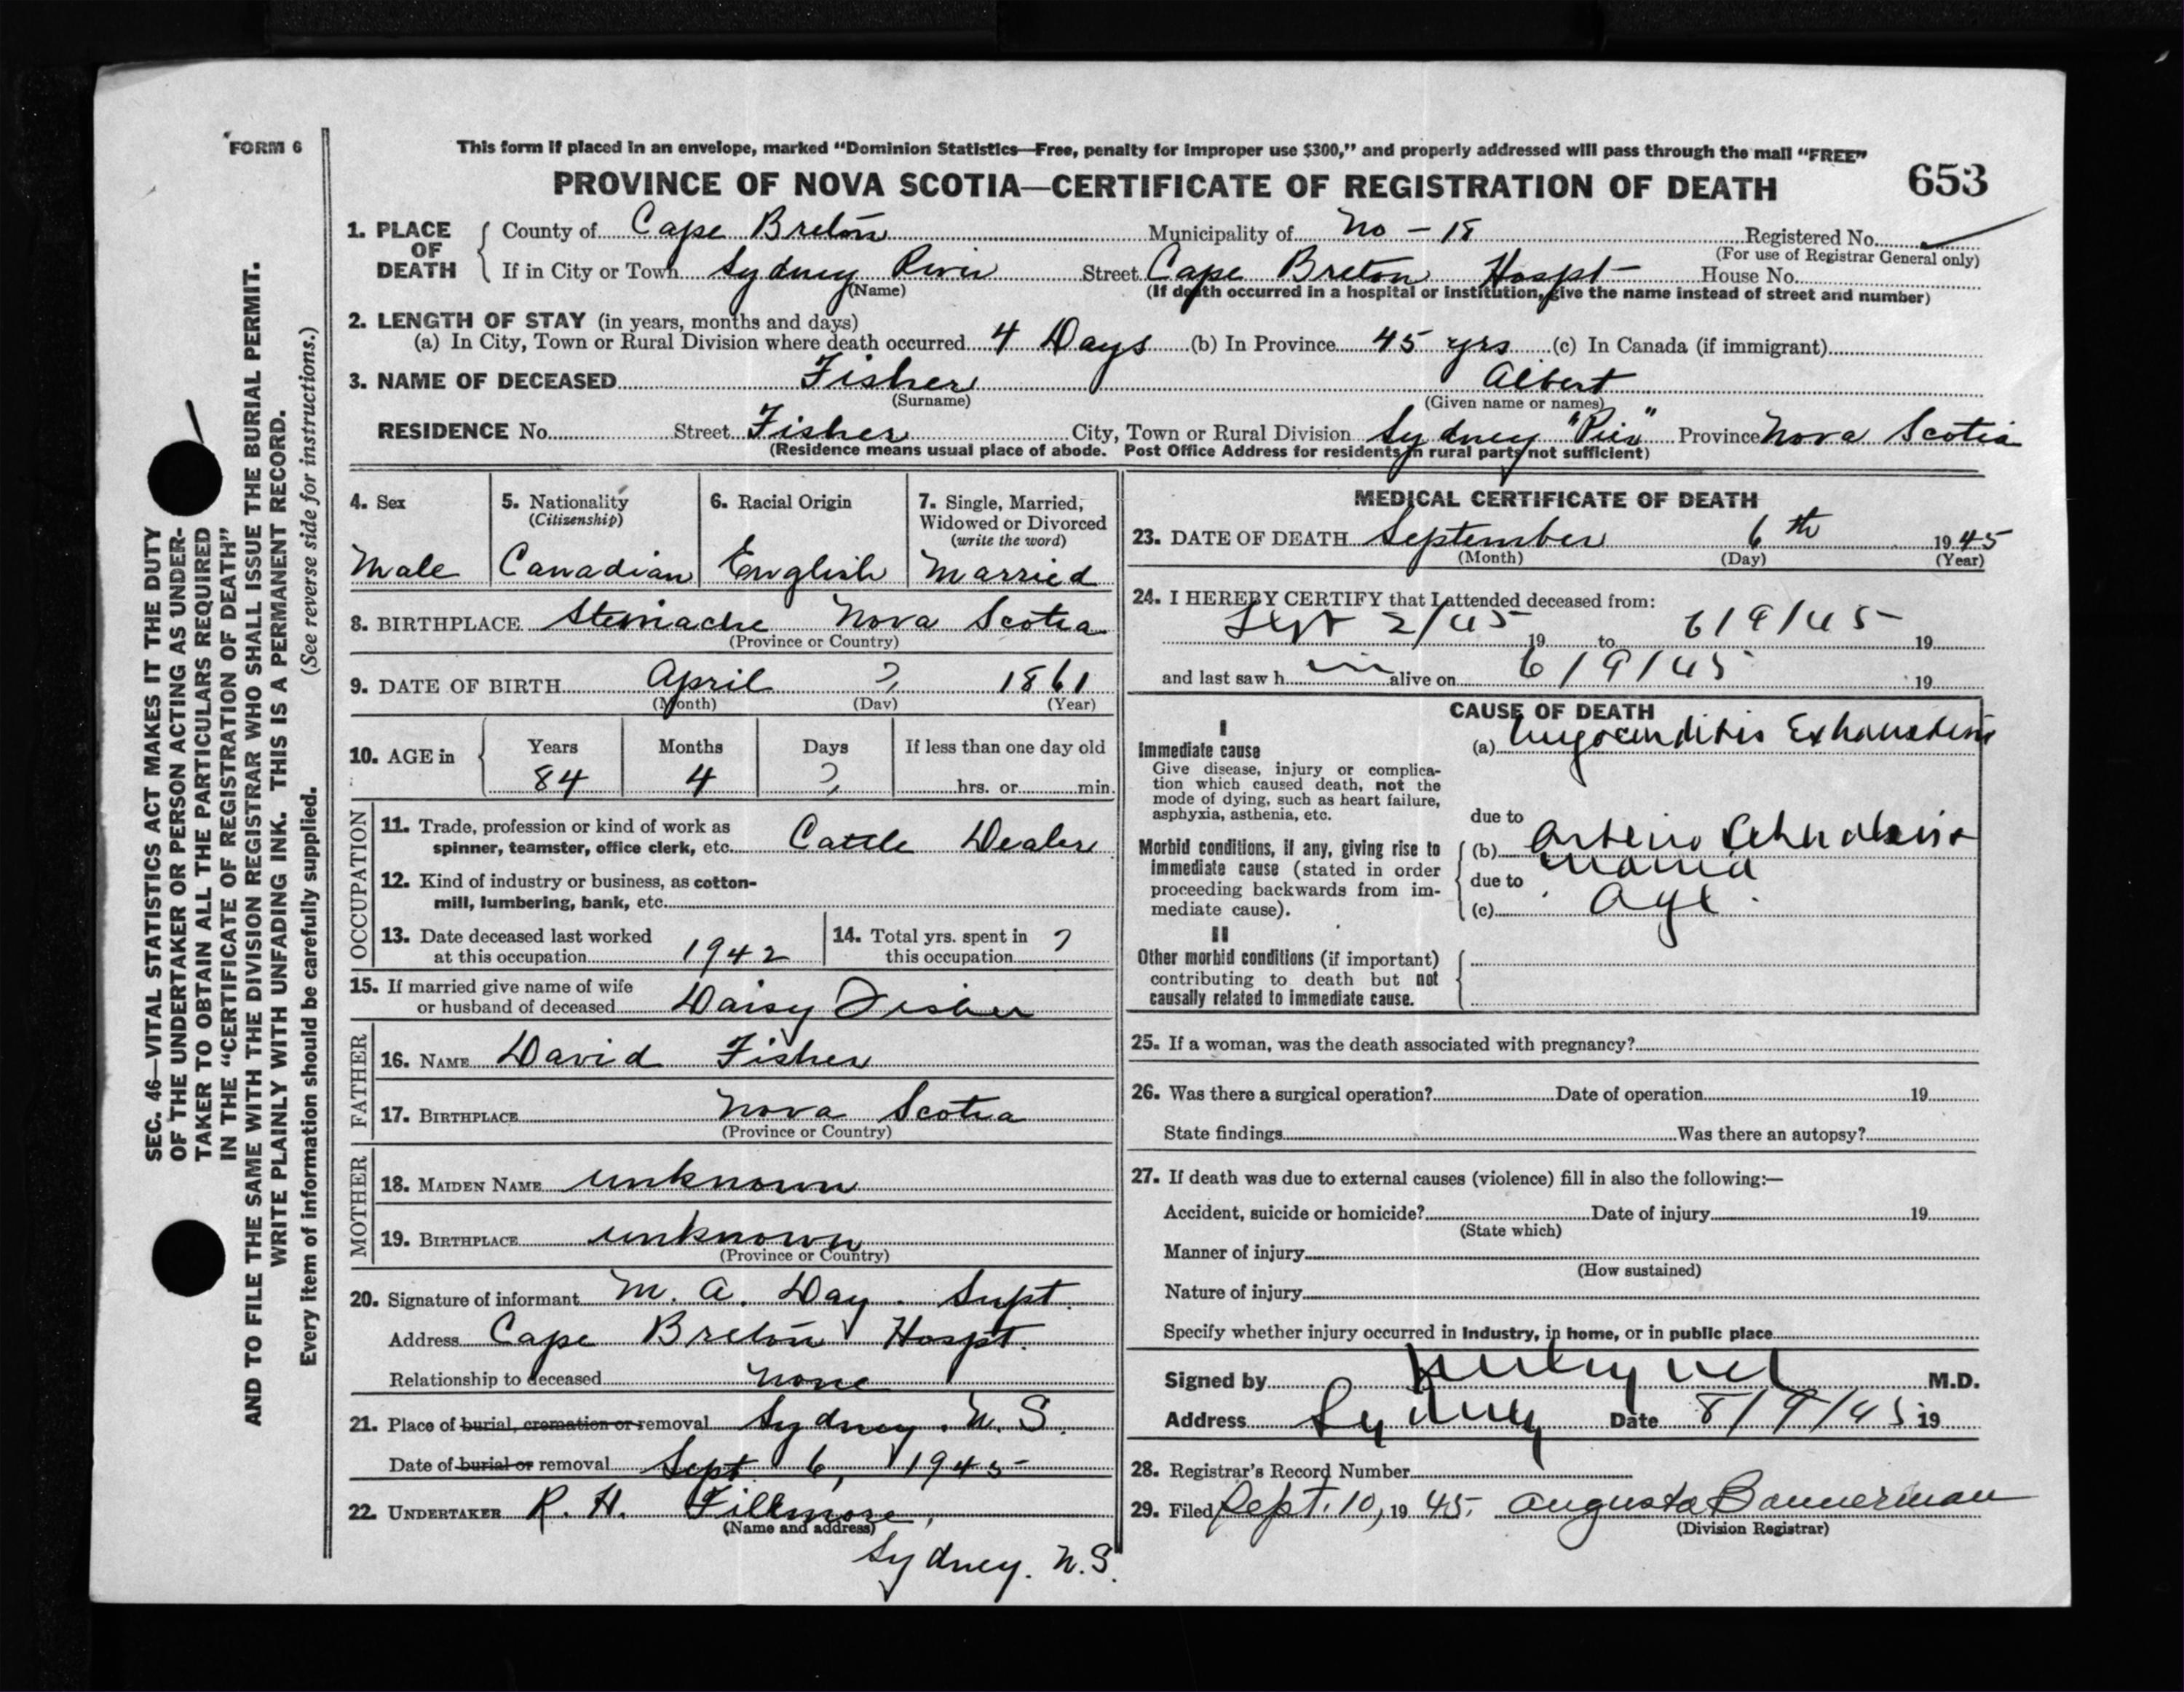 FORM 6
This form if placed in an envelope, marked "Dominion Statistics—Free, penalty for improper use $300," and properly addressed will pass through the mail "FREE"
PROVINCE OF NOVA SCOTIA—CERTIFICATE OF REGISTRATION OF DEATH
653
1. PLACE OF DEATH
County of Cape Breton Municipality of No - 18 Registered No.
(For use of Registrar General only)
If in City or Town Sydney River Street Cape Breton Hospt House No.
(Name) (If death occurred in a hospital or institution, give the name instead of street and number)
2. LENGTH OF STAY (in years, months and days)
(a) In City, Town or Rural Division where death occurred 4 Days (b) In Province 45 yrs (c) In Canada (if immigrant)
3. NAME OF DECEASED Fisher Albert
(Surname) (Given name or names)
RESIDENCE No. Street Fisher City, Town or Rural Division Sydney "Pier" Province Nova Scotia
(Residence means usual place of abode. Post Office Address for residents in rural parts not sufficient)
4. Sex
Male
5. Nationality
(Citizenship)
Canadian
6. Racial Origin
English
7. Single, Married,
Widowed or Divorced
(write the word)
Married
8. BIRTHPLACE Nova Scotia
(Province or Country)
9. DATE OF BIRTH April ? 1861
(Month) (Day) (Year)
10. AGE in
Years Months Days If less than one day old
84 4 ? hrs. or min.
OCCUPATION
11. Trade, profession or kind of work as
spinner, teamster, office clerk, etc. Cattle Dealer
12. Kind of industry or business, as cotton-
mill, lumbering, bank, etc.
13. Date deceased last worked
at this occupation 1942
14. Total yrs. spent in
this occupation ?
15. If married give name of wife
or husband of deceased Daisy Fisher
FATHER
16. NAME David Fisher
17. BIRTHPLACE Nova Scotia
(Province or Country)
MOTHER
18. MAIDEN NAME unknown
19. BIRTHPLACE unknown
(Province or Country)
20. Signature of informant M. A. Day. Supt.
Address Cape Breton Hospt.
Relationship to deceased none
21. Place of burial, cremation or removal Sydney. N. S.
Date of burial or removal Sept 6, 1945
22. UNDERTAKER R. H. Fillmore,
(Name and address)
Sydney. N.S.
MEDICAL CERTIFICATE OF DEATH
23. DATE OF DEATH September 6th 1945
(Month) (Day) (Year)
24. I HEREBY CERTIFY that I attended deceased from:
Sept 2/45 19 to 6/9/45 19
and last saw h im alive on 6/9/45 19
CAUSE OF DEATH
I
Immediate cause
Give disease, injury or complica-
tion which caused death, not the
mode of dying, such as heart failure,
asphyxia, asthenia, etc.
(a) Myocarditis Exhaustion
due to
Morbid conditions, if any, giving rise to
immediate cause (stated in order
proceeding backwards from im-
mediate cause).
(b) Arterio
due to mania
(c) Age.
II
Other morbid conditions (if important)
contributing to death but not
causally related to immediate cause.
25. If a woman, was the death associated with pregnancy?
26. Was there a surgical operation? Date of operation 19
State findings Was there an autopsy?
27. If death was due to external causes (violence) fill in also the following:—
Accident, suicide or homicide? Date of injury 19
(State which)
Manner of injury
(How sustained)
Nature of injury
Specify whether injury occurred in industry, in home, or in public place
Signed by M.D.
Address Sydney Date 8/9/45 19
28. Registrar's Record Number
29. Filed Sept. 10, 1945. Augusta Bannerman
(Division Registrar)
SEC. 46—VITAL STATISTICS ACT MAKES IT THE DUTY
OF THE UNDERTAKER OR PERSON ACTING AS UNDER-
TAKER TO OBTAIN ALL THE PARTICULARS REQUIRED
IN THE "CERTIFICATE OF REGISTRATION OF DEATH"
AND TO FILE THE SAME WITH THE DIVISION REGISTRAR WHO SHALL ISSUE THE BURIAL PERMIT.
WRITE PLAINLY WITH UNFADING INK. THIS IS A PERMANENT RECORD.
Every item of information should be carefully supplied. (See reverse side for instructions.)